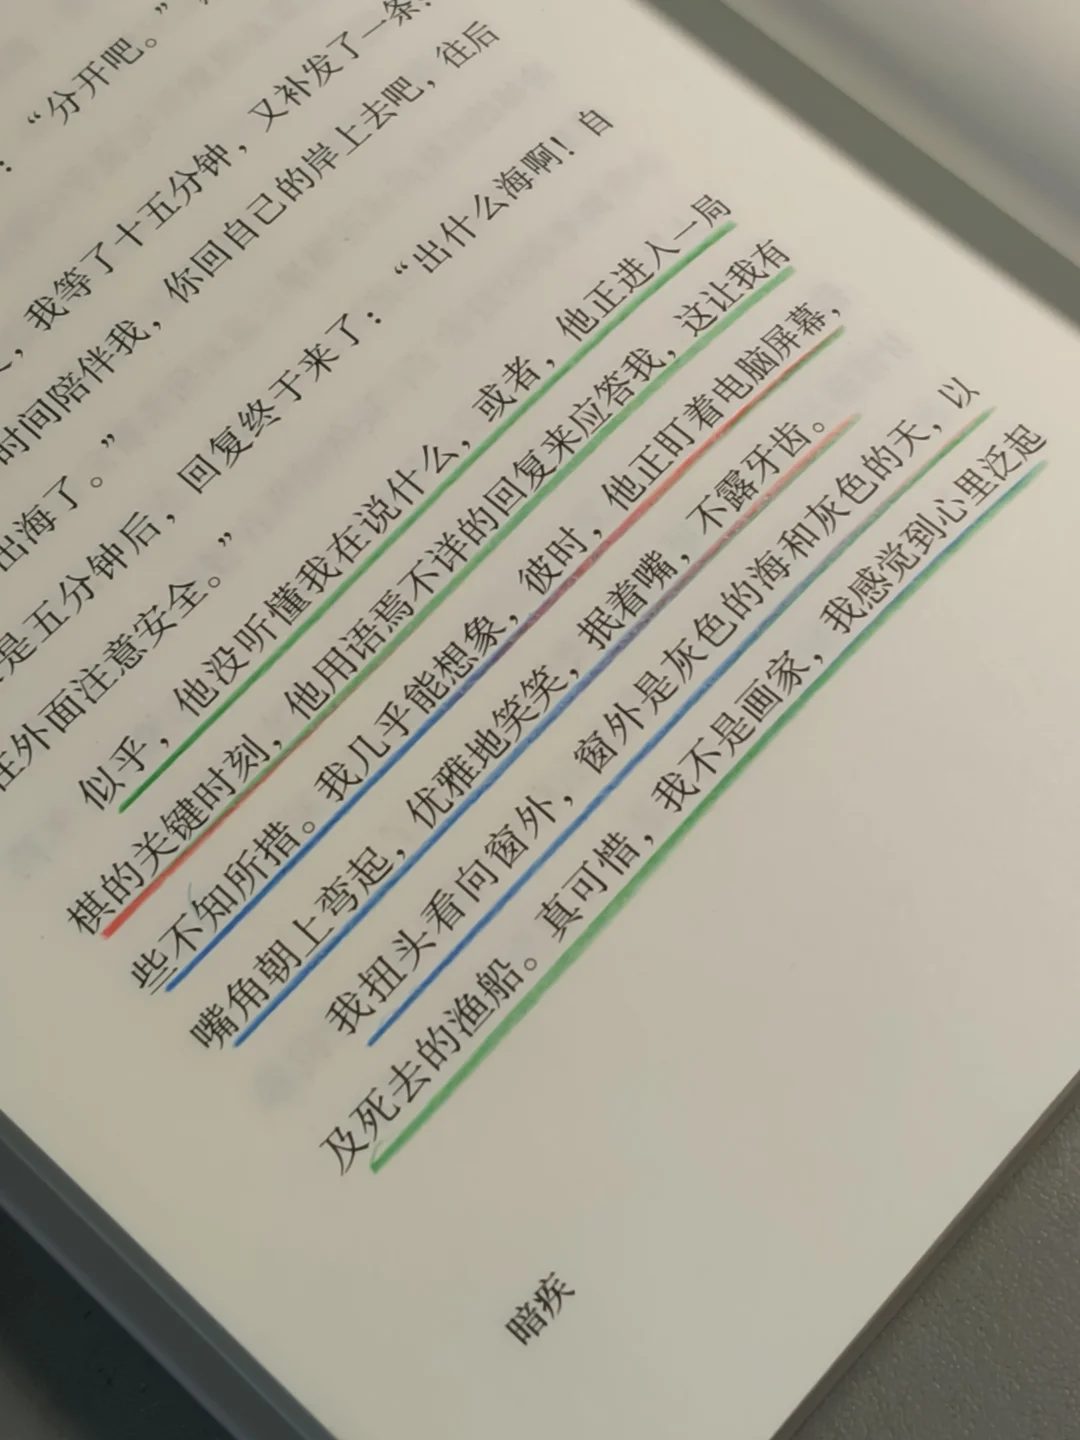 “分开吧。”
：
，我等了十五分钟，又补发了一条：
时间陪伴我，你回自己的岸上去吧，往后
出海了。”
是五分钟后，回复终于来了：“出什么海啊！自
在外面注意安全。”
似乎，他没听懂我在说什么，或者，他正进入一局
棋的关键时刻，他用语焉不详的回复来应答我，这让我有
些不知所措。我几乎能想象，彼时，他正盯着电脑屏幕，
嘴角朝上弯起，优雅地笑笑，抿着嘴，不露牙齿。
我扭头看向窗外，窗外是灰色的海和灰色的天，以
及死去的渔船。真可惜，我不是画家，我感觉到心里泛起
暗疾